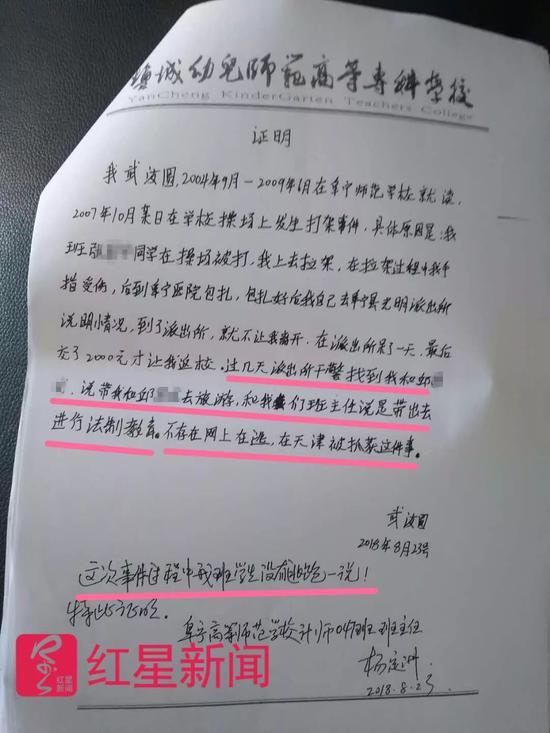 盐城幼儿师范高等专科学校
YanCheng KinderGarten Teachers College
证明
我武汝圆,2004年9月—2009年6月在阜宁师范学校就读,
2007年10月某日在学校操场上发生打架事件,具体原因是:我
班张 同学在操场被打,我上去拉架,在拉架过程中我手
指受伤,后到阜宁医院包扎,包扎好后我自己去阜宁县光明派出所
说明情况,到了派出所,就不让我离开.在派出所呆了一天,最后
交了2000元才让我返校.过几天派出所干警找到我和邱
,说带我和邱 去旅游,和我们班主任说是带出去
进行法制教育。不存在网上在逃,在天津被抓获这件事。
武汝圆
2018年8月23号
这次事件过程中我班学生没有逃跑一说!
特此证明.
阜宁高等师范学校 047班班主任
杨
2018.8.23
红星新闻
红星新闻